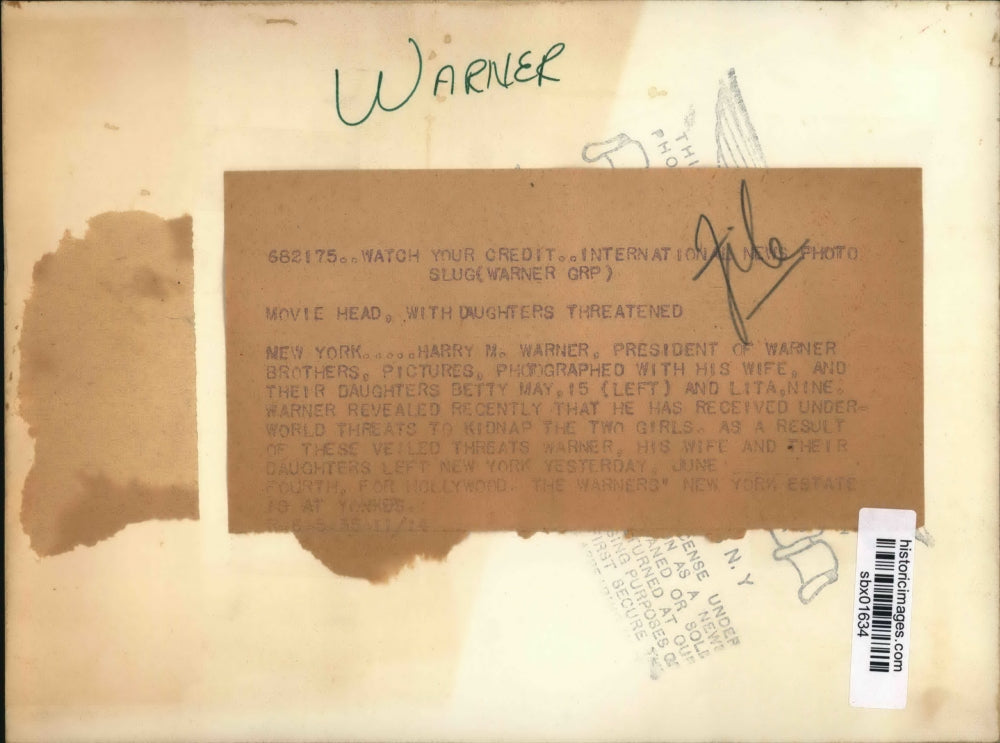 WARNER
THI
PHO
File
682175..WATCH YOUR CREDIT..INTERNATIONAL NEWS PHOTO
SLUG(WARNER GRP)
MOVIE HEAD, WITH DAUGHTERS THREATENED
NEW YORK......HARRY M. WARNER, PRESIDENT OF WARNER
BROTHERS, PICTURES, PHOTOGRAPHED WITH HIS WIFE, AND
THEIR DAUGHTERS BETTY MAY,15 (LEFT) AND LITA,NINE.
WARNER REVEALED RECENTLY THAT HE HAS RECEIVED UNDER-
WORLD THREATS TO KIDNAP THE TWO GIRLS. AS A RESULT
OF THESE VEILED THREATS WARNER, HIS WIFE AND THEIR
DAUGHTERS LEFT NEW YORK YESTERDAY, JUNE
FOURTH, FOR HOLLYWOOD. THE WARNERS" NEW YORK ESTATE
IS AT YONKERS.
N. Y
CENSE UNDER
N AS A NEWS
ANED OR SOLD
TURNED AT OUR
SING PURPOSES OR
IRST SECURE
historicimages.com
sbx01634